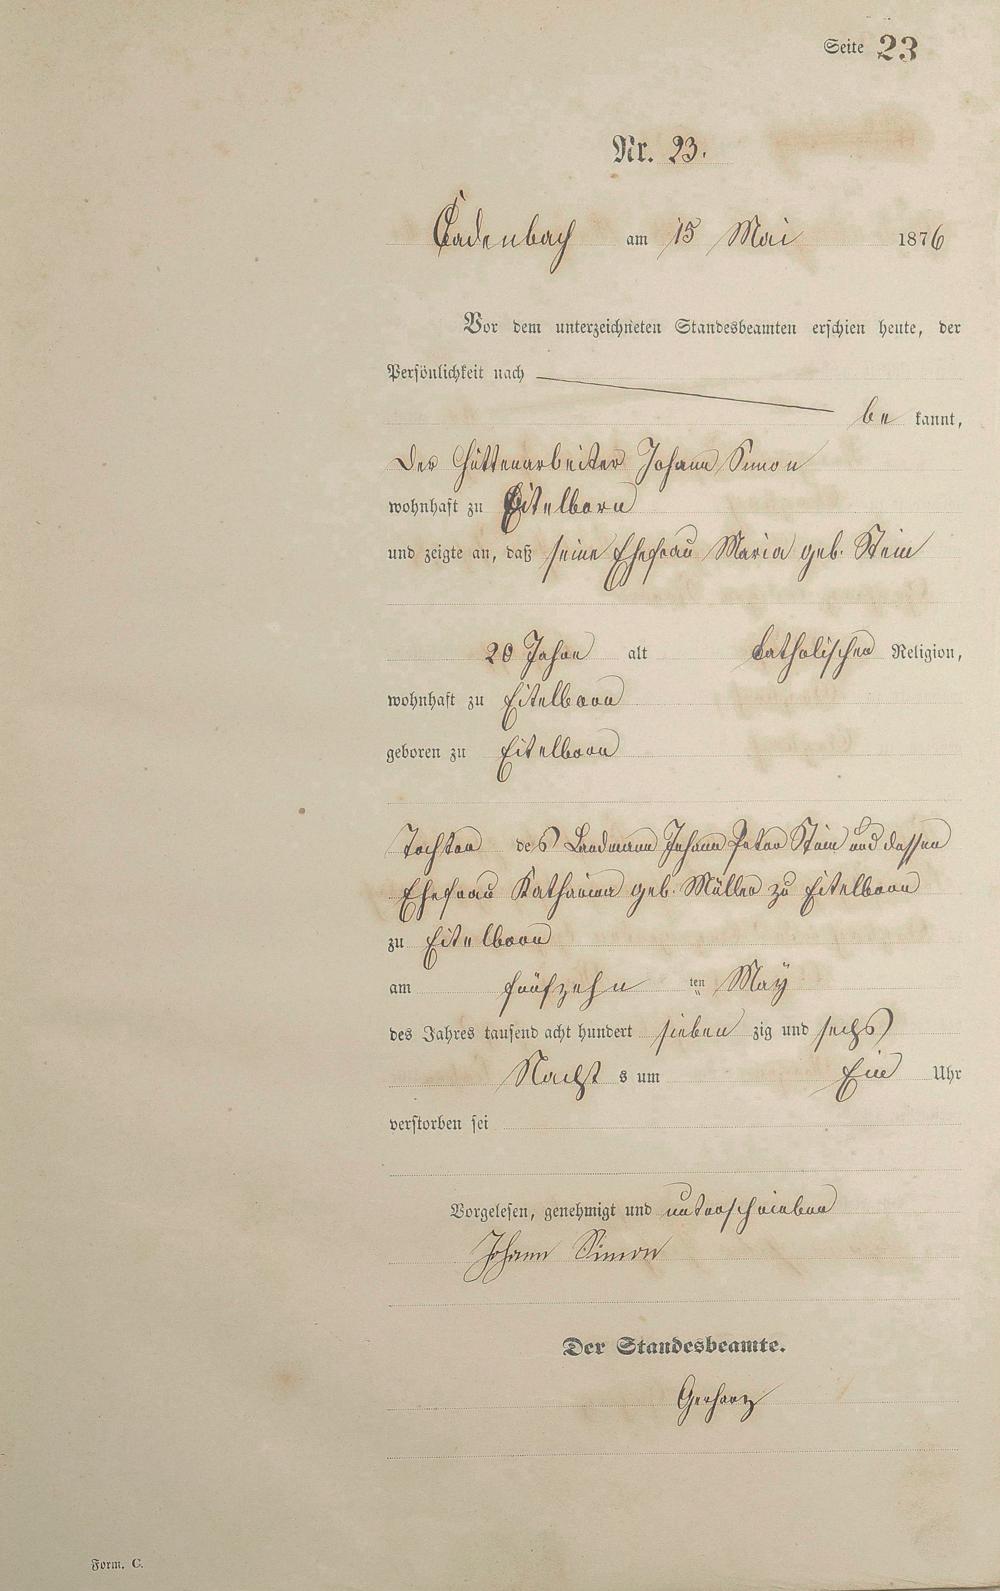 Seite 23
Nr. 23.
Cadenbach am 15 Mai 1876
Vor dem unterzeichneten Standesbeamten erschien heute, der
Persönlichkeit nach
be kannt,
Der Hüttenarbeiter Johann Simon
wohnhaft zu Eitelborn
und zeigte an, daß seine Ehefrau Maria geb. Stein
20 Jahre alt katholischer Religion,
wohnhaft zu Eitelborn
geboren zu Eitelborn
Tochter des Landmann Johann Peter Stein und dessen
Ehefrau Katharina geb. Müller zu Eitelborn
zu Eitelborn
am fünfzehn ten May
des Jahres tausend acht hundert sieben zig und sechs
Nacht s um Ein Uhr
verstorben sei
Vorgelesen, genehmigt und unterschrieben
Johann Simon
Der Standesbeamte.
Gerharz
Form. C.